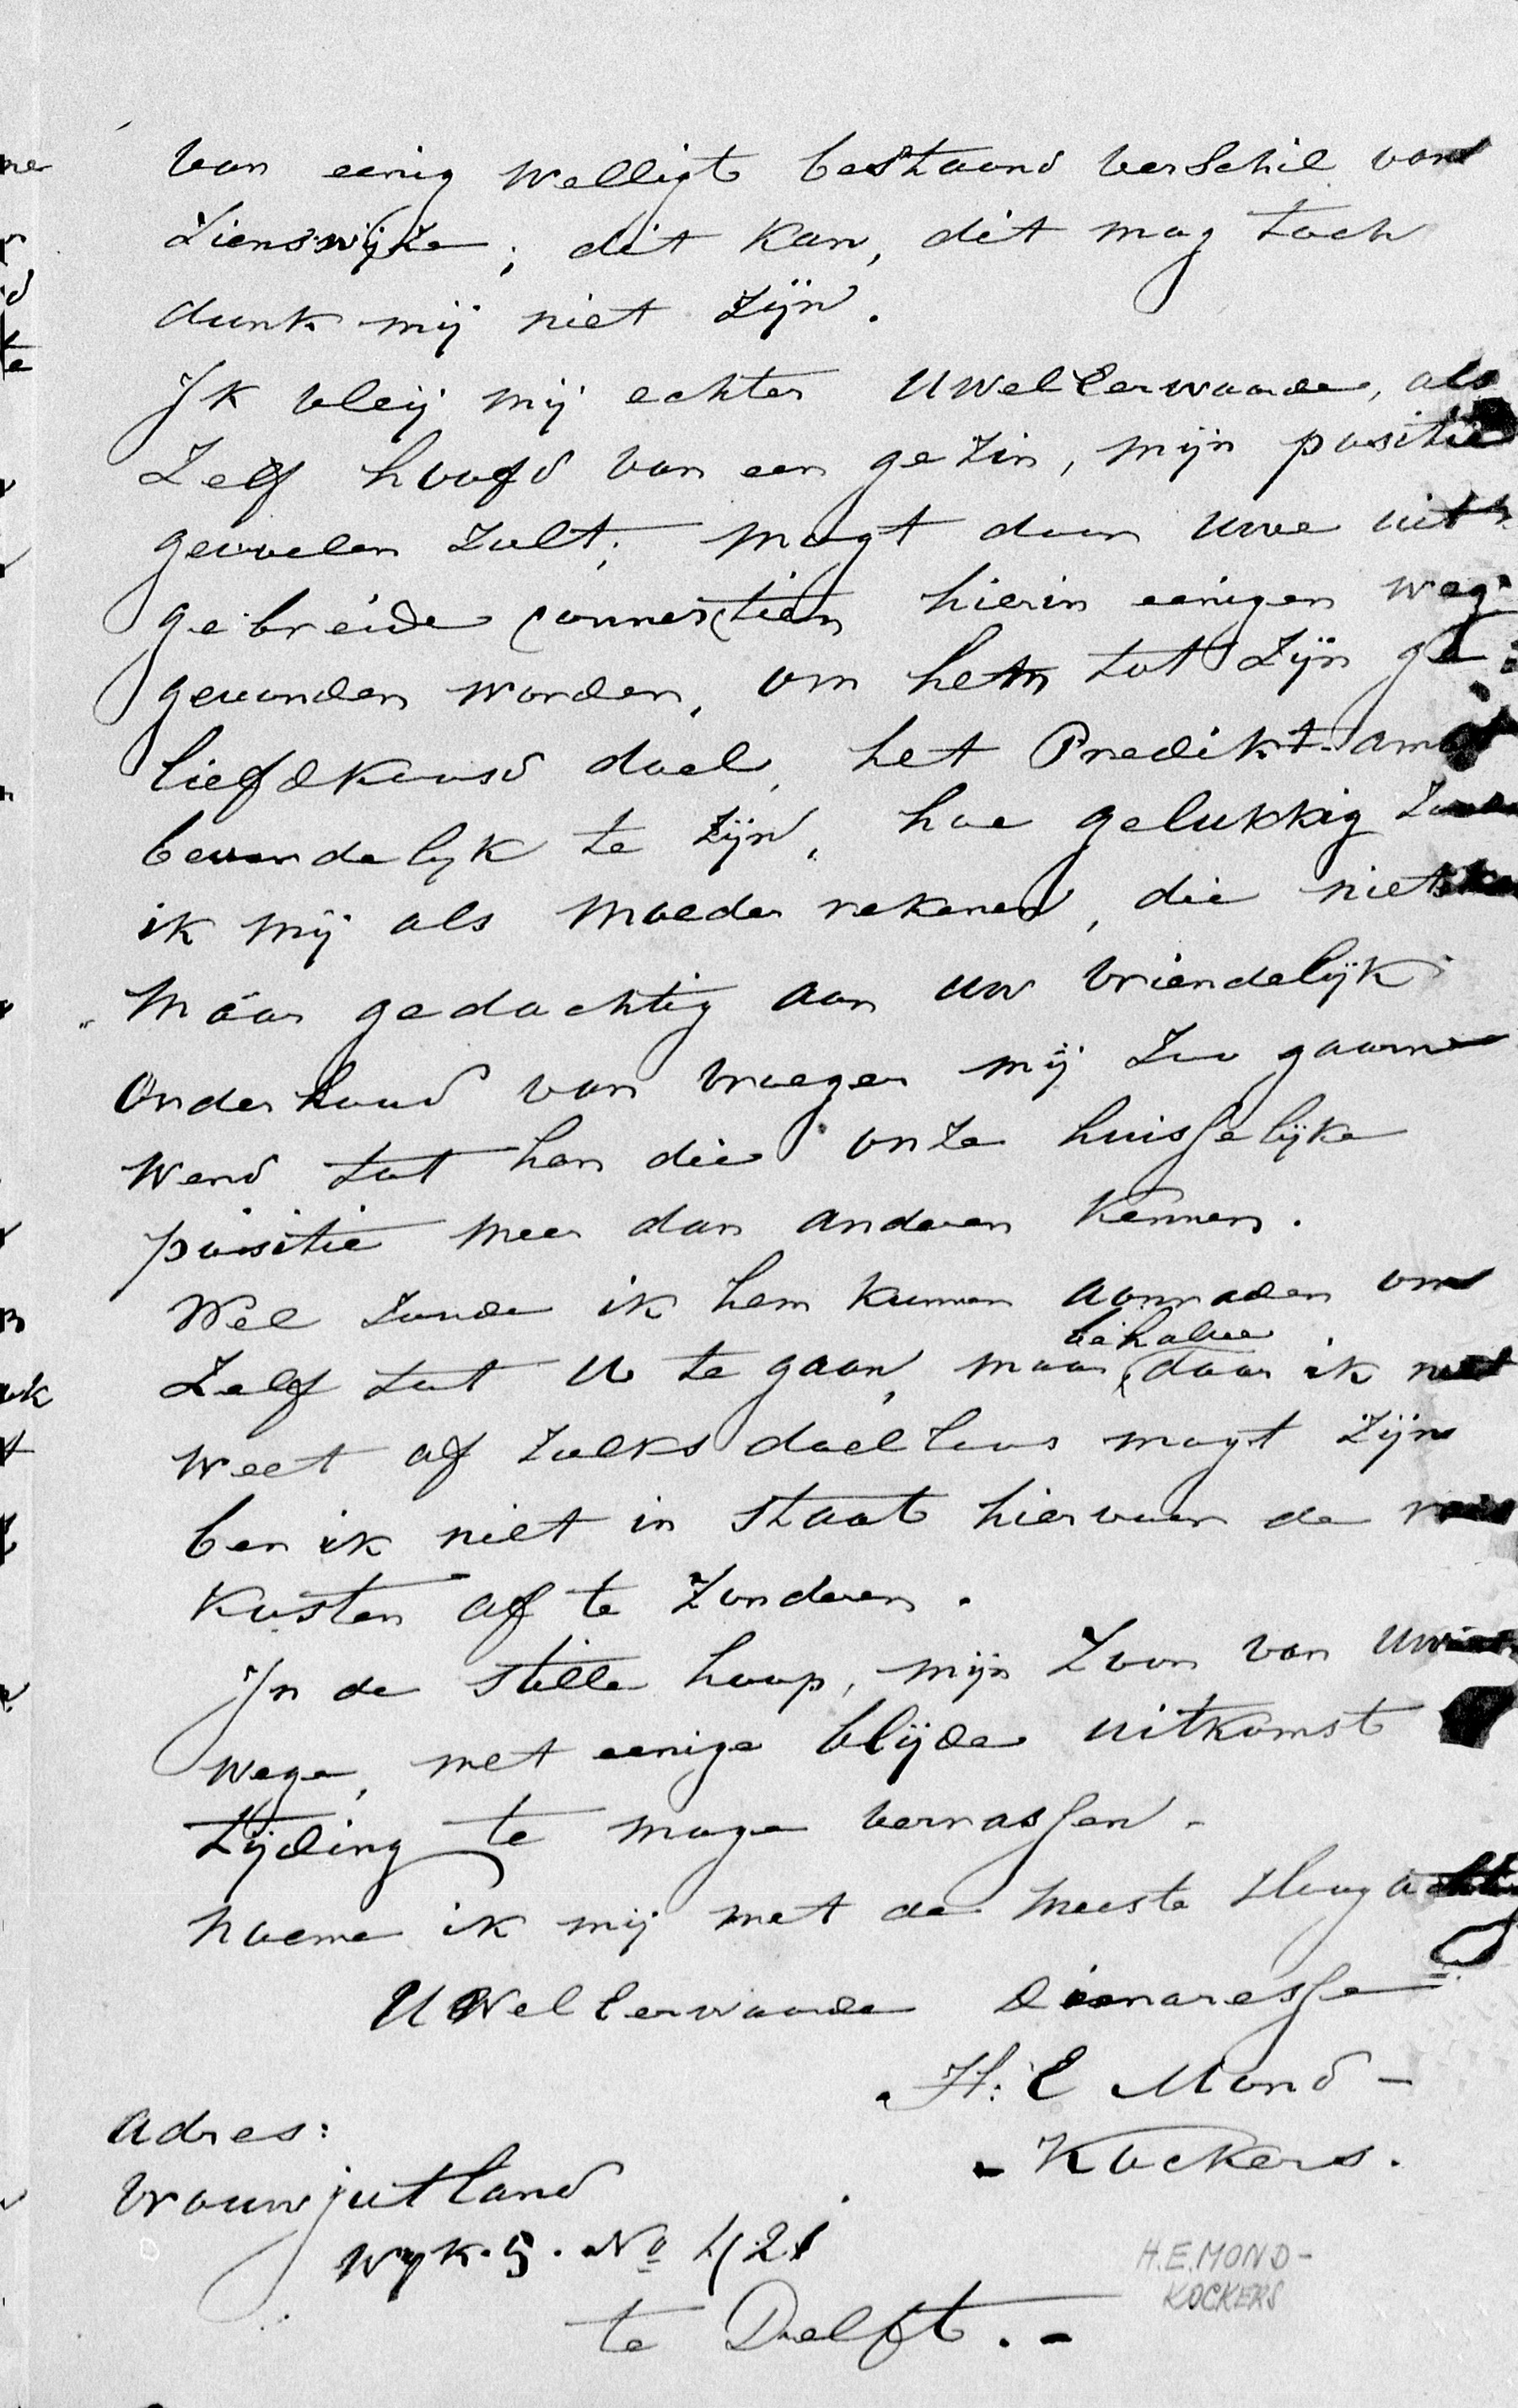 van eenig welligt bestaand verschil van
zienswijze; dit kan, dit mag toch
dunk mij niet zijn.
Ik vleij mij echter UwelEerwaarde, als
zelf hoofd van een gezin, mijn positie
gevoelen zult; mogt door uwe uit-
gebreide connectien hierin eenigen weg
gevonden worden, om hem tot zijn ge-
liefdkoosd doel, het Predikt-ambt
bevorderlijk te zijn, hoe gelukkig zoude
ik mij als moeder rekenen, die niet
maar gedachtig aan uw vriendelijk
onderhoud van vroeger mij zoo gaarne
wend tot hen die onze huisselijke
positie meer dan anderen kennen.
Wel zoude ik hem kunnen aanraden om
behalve
zelf tot U te gaan, maar daar ik niet
weet of zulks doelloos mogt zijn
ben ik niet in staat hiervoor de reis
kosten af te zonderen.
In de stille hoop, mijn Zoon van Uwent
wege, met eenige blijde uitkomst
tijding te moge verrassen.
noeme ik mij met de meeste Hoogachting
UWelEerwaarde Dienaresse
H: E Mond-
- Kockers.
Adres:
Vrouwjutland
Wyk. 5. No 421
te Delft. -
H.E. MOND-
KOCKERS